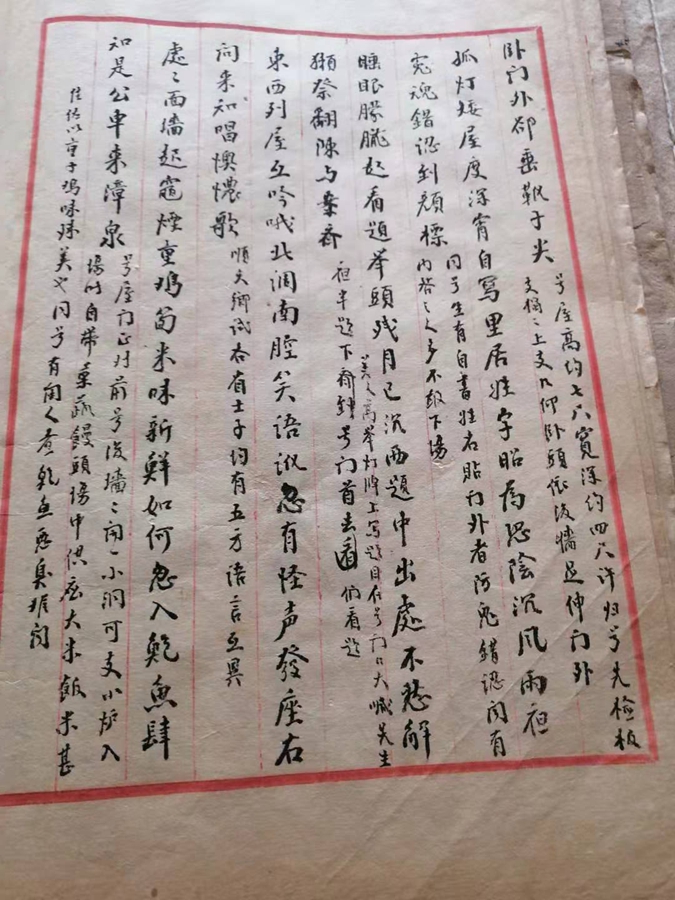 卧门外却垂靴子尖
号屋高约七八宽深约四尺许归号先检板
支搁之上支几仰卧头依后墙足伸门外
孤灯矮屋度深宵自写里居姓字昭为恐阴沉风雨夜
冤魂错认到颜标
同号生有自书姓名贴门外者防鬼错认闻有
内答之人多不敢下场
睡眼朦胧起看题举头残月已沉西题中出处不愁解
獭祭翻陈与案齐
夜半题下齐钟号门首去看
美之高举灯牌上写题目在号门口大喊先生
们看题
东西列屋互吟哦北调南腔笑语讹忽有怪声发座右
问来知唱懊憹歌
顺天乡试各省士子均有五方语言互异
处处面墙起灶烟重鸡笋米味新鲜如何忽入鲍鱼肆
知是公车来漳泉
号屋门正对前号后墙墙开一小洞可支小炉入
场时自带菜蔬馒头场中供应大米饭米甚
佳佐以童子鸡味殊美也同号有闽人煮乾鱼恶臭难闻